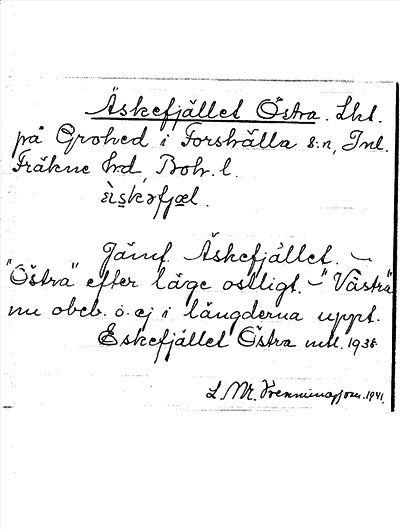 Äskefjället Östra. Lht.
på Grohed i Forshälla s:n, Inl.
Fräkne hd, Boh. l.
Jämf. Äskefjället. –
"Östra" efter läge ostligt. – "Västra"
nu obeb. o. ej i längderna uppt.
Eskefjället Östra mtl. 1938.
L. M. 1941.